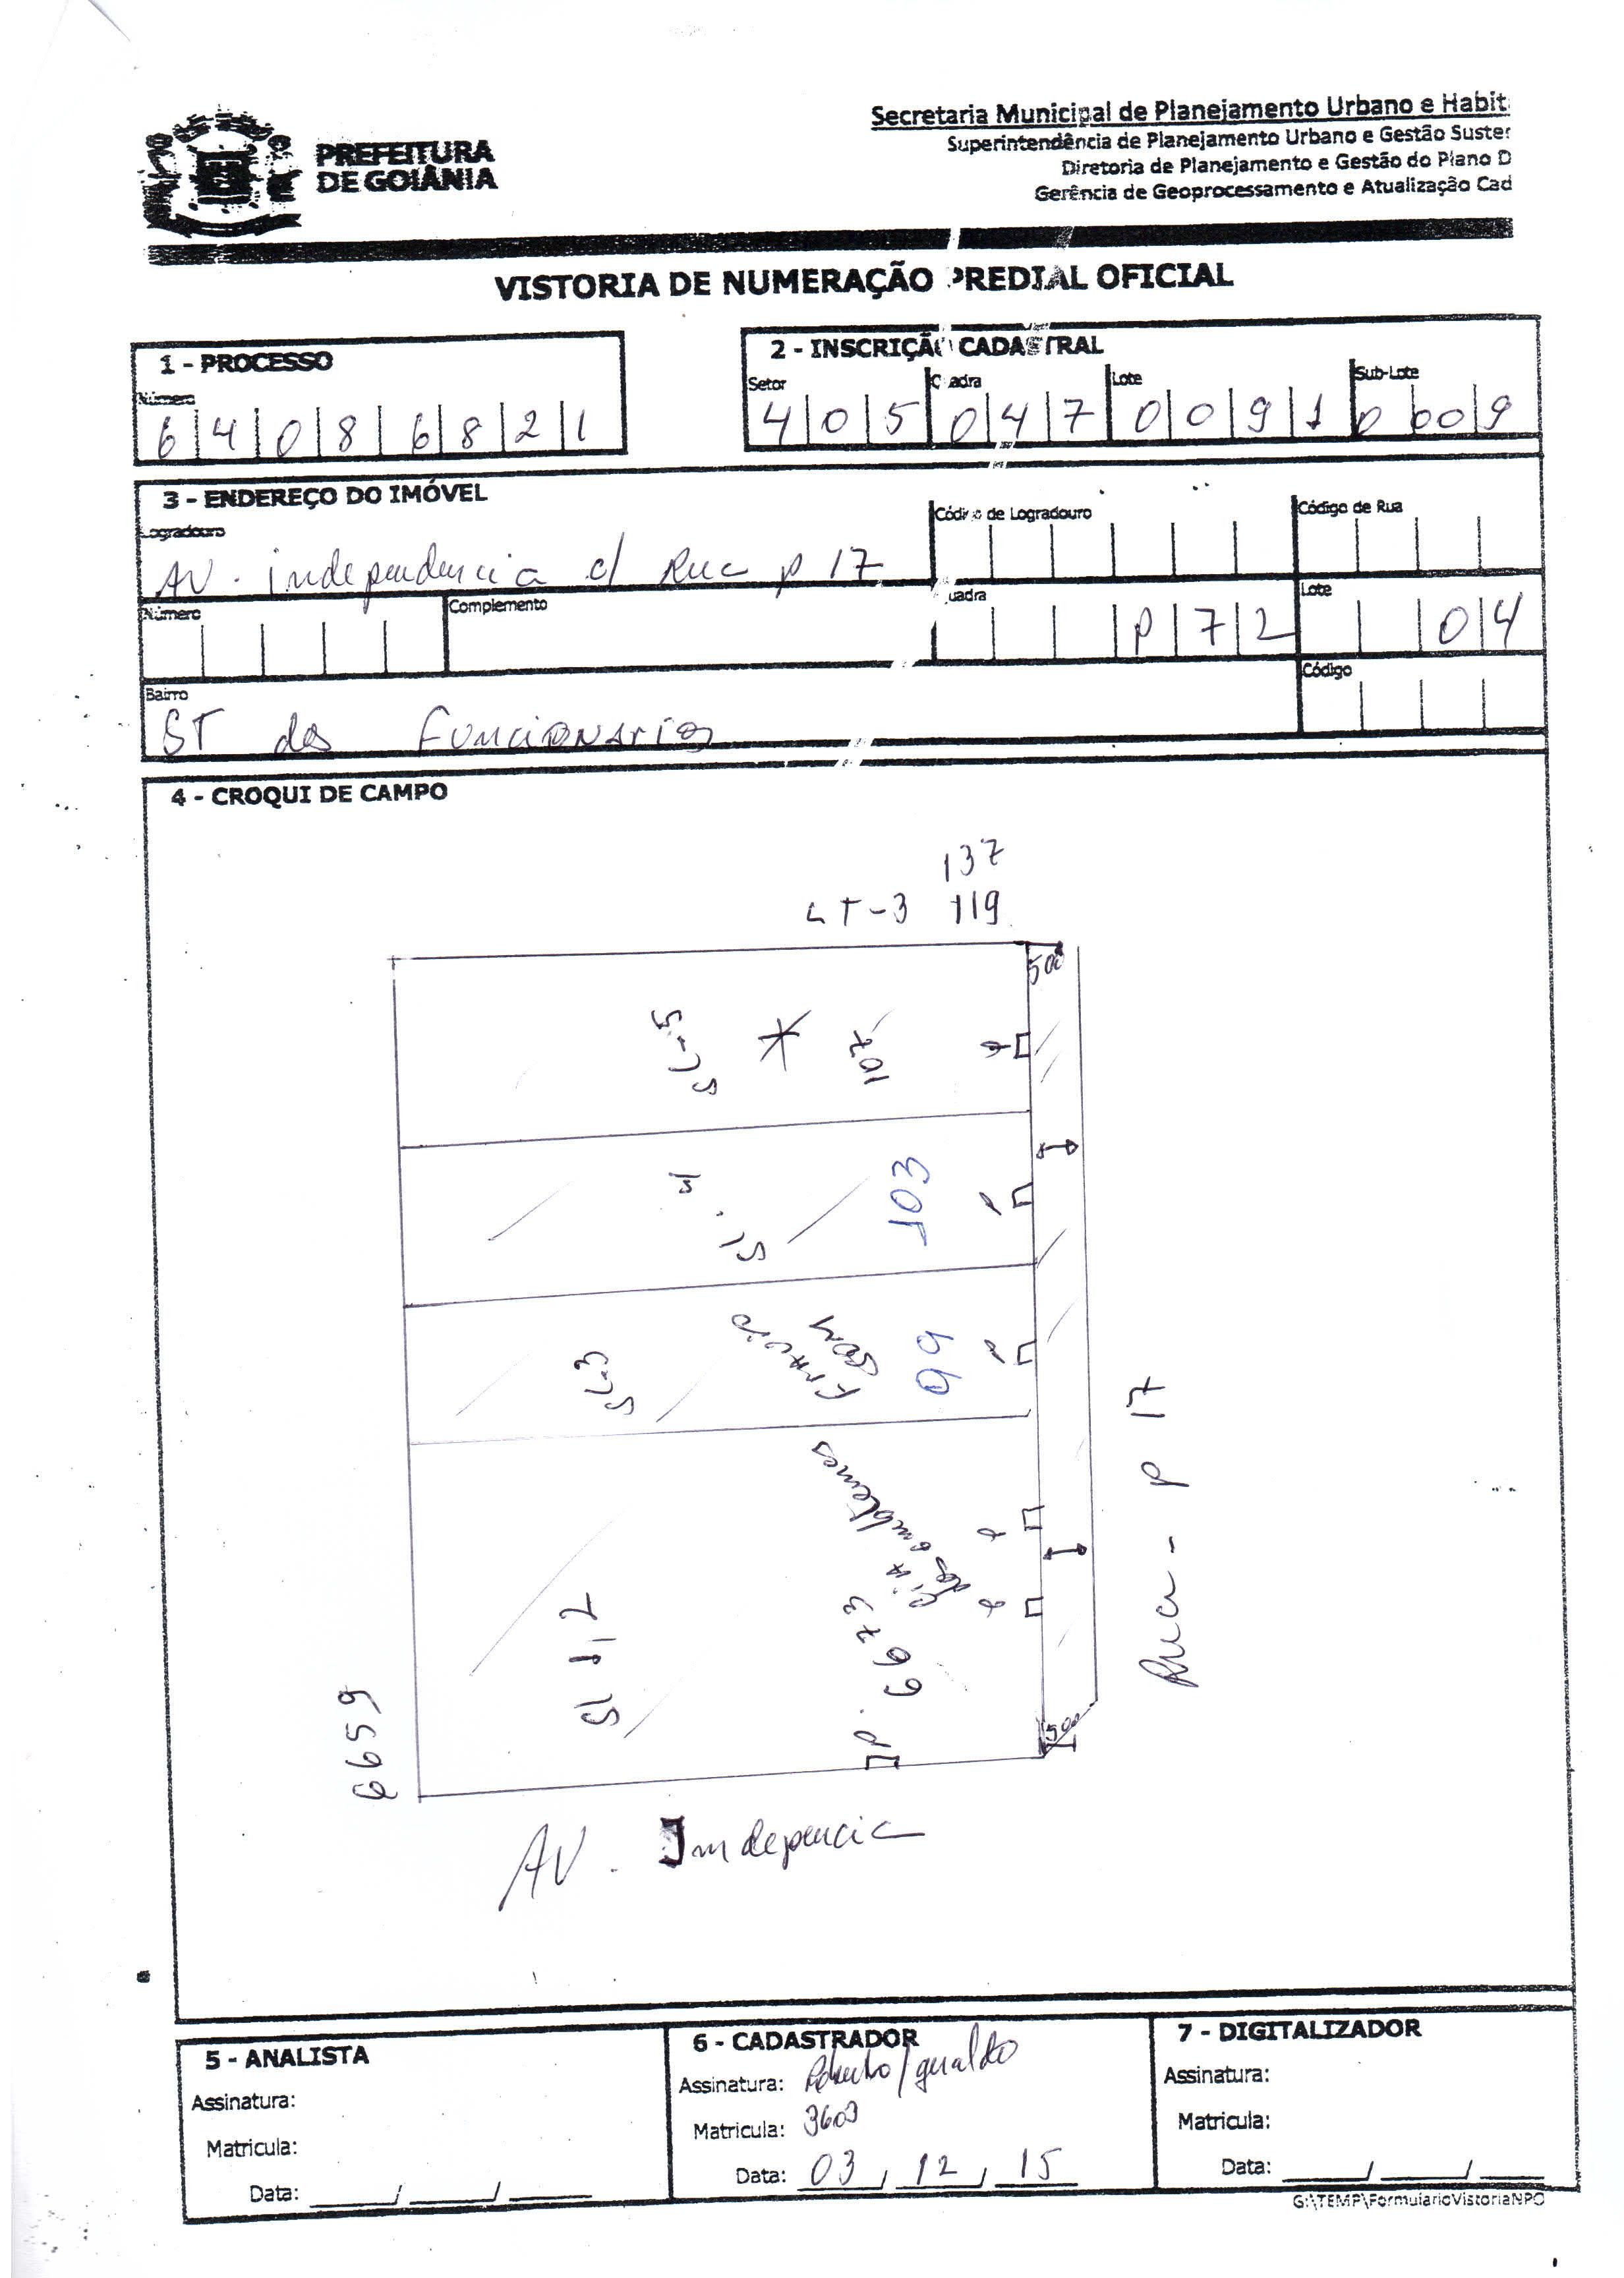 PREFEITURA
DE GOIÂNIA
Secretaria Municipal de Planejamento Urbano e Habit
Superintendência de Planejamento Urbano e Gestão Suster
Diretoria de Planejamento e Gestão do Plano D
Gerência de Geoprocessamento e Atualização Cad
VISTORIA DE NUMERAÇÃO PREDIAL OFICIAL
1 - PROCESSO
Número
6 4 0 8 6 8 2 1
2 - INSCRIÇÃO CADASTRAL
Setor Quadra Lote Sub-Lote
4 0 5 0 4 7 0 0 9 1 0 0 0 9
3 - ENDEREÇO DO IMÓVEL
Logradouro
AV. independencia c/ Rua p 17
Código de Logradouro
Código de Rua
Número
Complemento
Quadra
P 7 2
Lote
0 4
Bairro
ST dos Funcionarios
Código
4 - CROQUI DE CAMPO
137
LT-3 119
500
SL-5 107
SL. 4 103
SL-3 99
SL 1, 2
6673
500
Rua - P 17
6659
AV. Indepencia
5 - ANALISTA
Assinatura:
Matricula:
Data: / /
6 - CADASTRADOR
Assinatura: Roberto/geraldo
Matricula: 3603
Data: 03, 12, 15
7 - DIGITALIZADOR
Assinatura:
Matricula:
Data: / /
G:\TEMP\FormularioVistoriaNPO